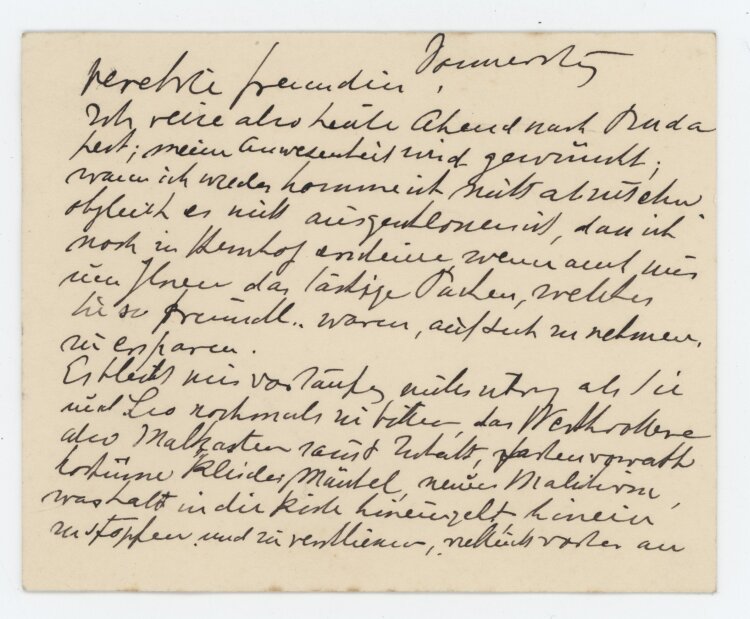 Donnerstag
verehrte Freundin!
Ich reise also heute Abend nach Buda
pest; meine Anwesenheit wird gewünscht;
wann ich wieder komme ist nicht abzusehen
obgleich es nicht ausgeschlossen ist, dass ich
noch in erscheine wenn auch nur
um Ihnen das lästige Packen, welches
Sie so freundl. waren, auf sich zu nehmen,
zu ersparen.
Es bleibt mir vorläufig nichts übrig als Sie
und Leo nochmals zu bitten, das Werthvollere
also Malkasten samt Inhalt, Farbenvorrath
Kostüme Kleider Mäntel, neues
was halt in die Kiste hineingeht hinein
zu stopfen und zu verschliessen, vielleicht vorher an